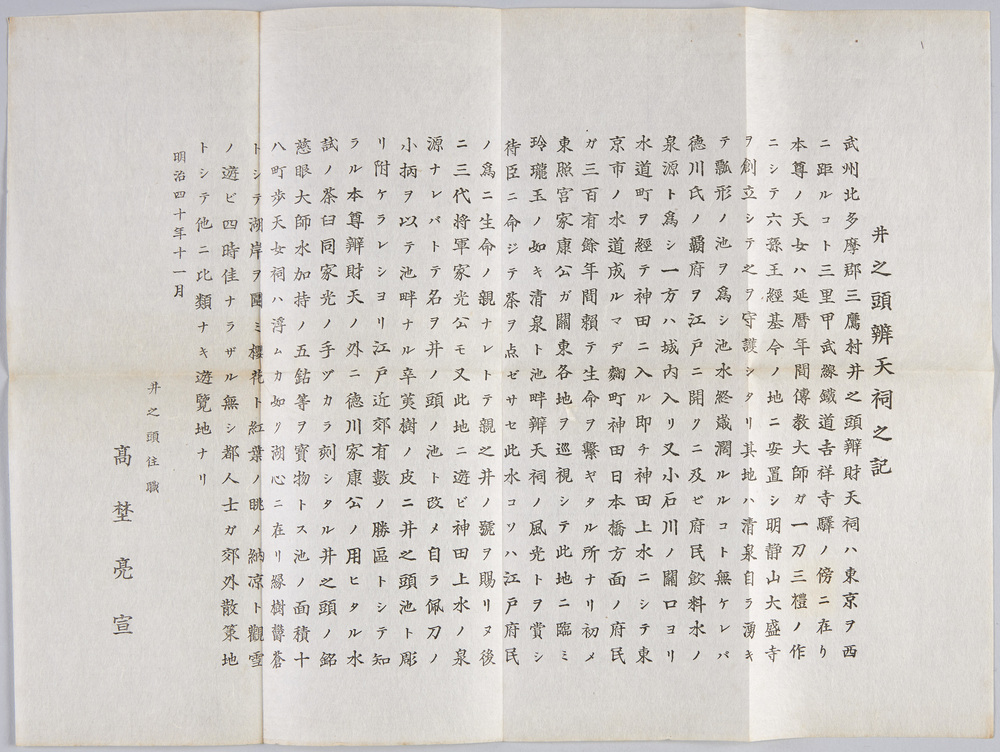 井之頭辨天祠之記
武州北多摩郡三鷹村井之頭辯財天祠ハ東京ヲ西
ニ距ルコト三里甲武線鐵道吉祥寺驛ノ傍ニ在リ
本尊ノ天女ハ延暦年間傳教大師ガ一刀三禮ノ作
ニシテ六孫王經基今ノ地ニ安置シ明静山大盛寺
ヲ創立シテ之ヲ守護シタリ其地ハ清泉自ラ湧キ
テ瓢形ノ池ヲ爲シ池水終歳涸ルルコト無ケレバ
德川氏ノ覇府ヲ江戸ニ開クニ及ビ府民飲料水ノ
泉源ト爲シ一方ハ城内入リ又小石川ノ關口ヨリ
水道町ヲ經テ神田ニ入ル即チ神田上水ニシテ東
京市ノ水道成ルマデ麴町神田日本橋方面ノ府民
ガ三百有餘年間賴テ生命ヲ繫ギタル所ナリ初メ
東照宮家康公ガ關東各地ヲ巡視シテ此地ニ臨ミ
玲瓏玉ノ如キ清泉ト池畔辨天祠ノ風光トヲ賞シ
待臣ニ命ジテ茶ヲ点ゼサセ此水コソハ江戸府民
ノ爲ニ生命ノ親ナレトテ親之井ノ號ヲ賜リヌ後
ニ三代將軍家光公モ又此地ニ遊ビ神田上水ノ泉
源ナレバトテ名ヲ井ノ頭ノ池ト改メ自ラ佩刀ノ
小柄ヲ以テ池畔ナル辛荑樹ノ皮ニ井之頭池ト彫
リ附ケラレシヨリ江戸近郊有數ノ勝區トシテ知
ラル本尊辯財天ノ外ニ德川家康公ノ用ヒタル水
試ノ茶臼同家光ノ手ヅカラ刻シタル井之頭ノ銘
慈眼大師水加持ノ五鈷等ヲ寶物トス池ノ面積十
八町歩天女祠ハ浮ムカ如ク湖心ニ在リ緑樹欝蒼
トシテ湖岸ヲ圍ミ櫻花ト紅葉ノ眺メ納凉ト觀雪
ノ遊ビ四時佳ナラザル無シ都人士ガ郊外散策地
トシテ他ニ比類ナキ遊覽地ナリ
明治四十年十一月
井之頭住職
髙埜亮宣